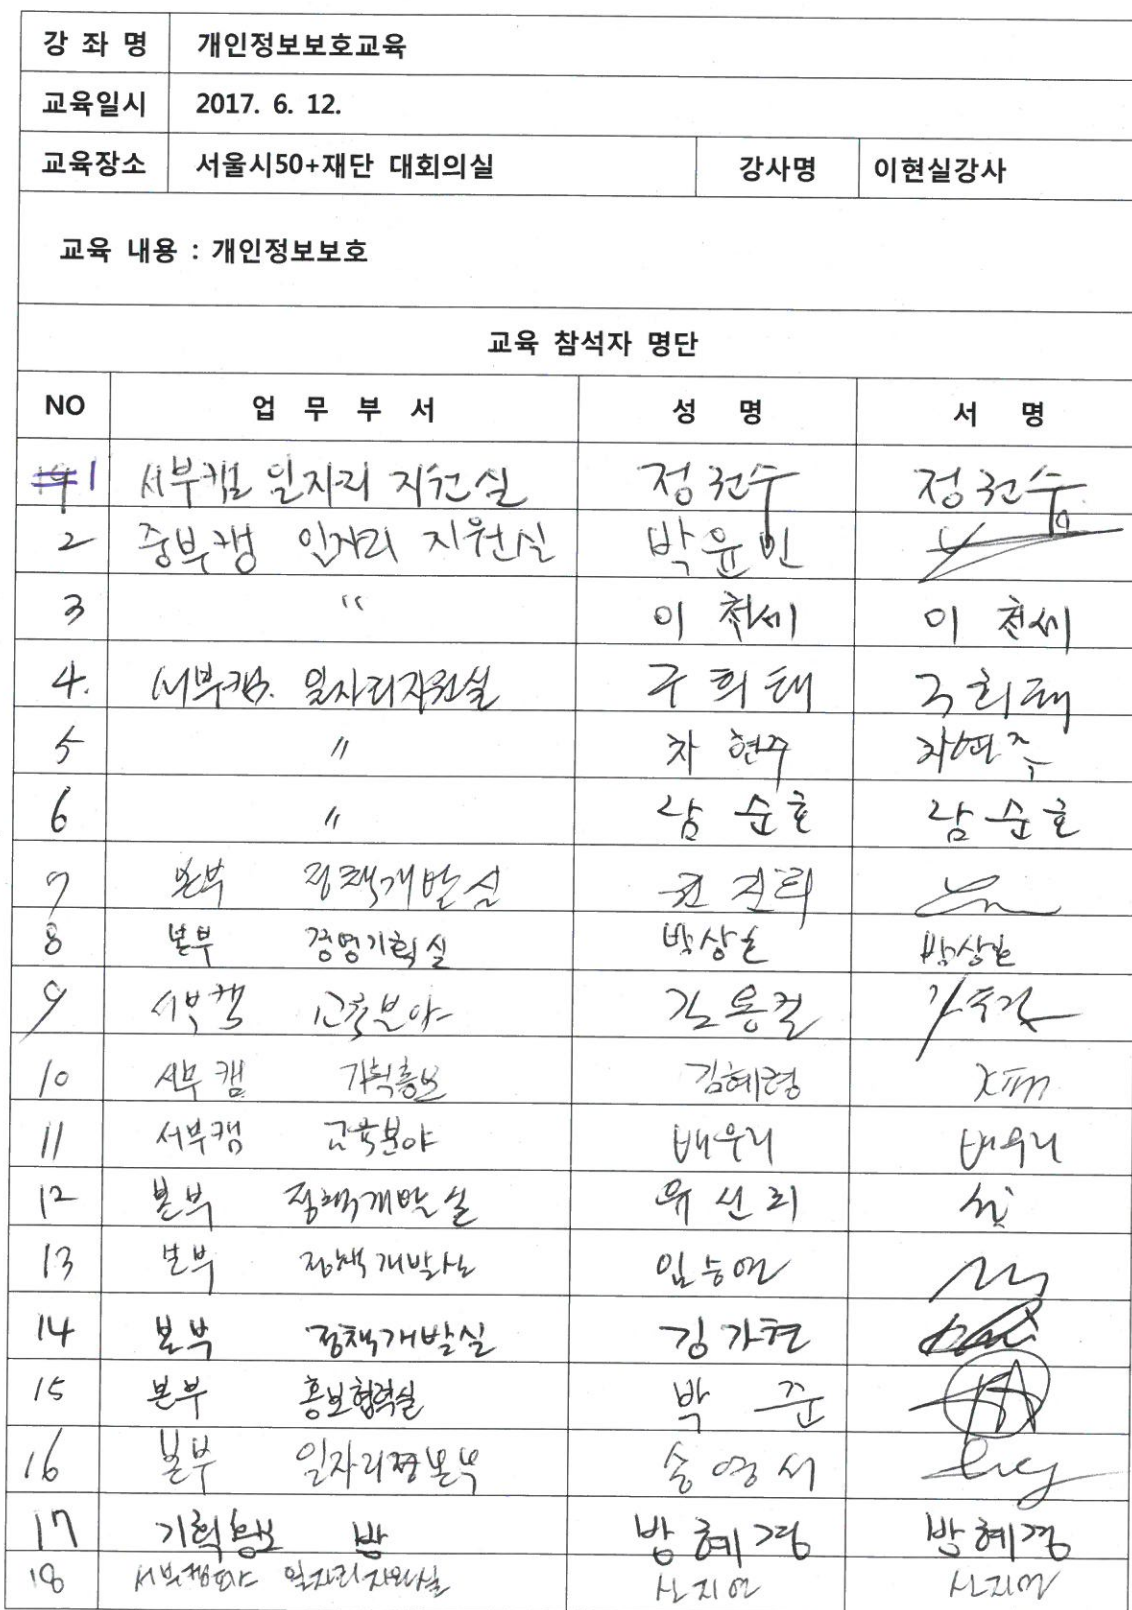 강 좌 명 개인정보보호교육
교육일시 2017. 6. 12.
교육장소 서울시50+재단 대회의실 강사명 이현실강사
교육 내용 : 개인정보보호
교육 참석자 명단
NO 업 무 부 서 성 명 서 명
1 서부캠 일자리 지원실 정권수 정권수
2 중부캠 일자리 지원실 박윤빈
3 〃 이천세 이천세
4. 서부캠. 일자리지원실 구희태 구희태
5 〃 차현주 차현주
6 〃 남순호 남순호
7 본부 정책개발실
8 본부 경영기획실 박상호 박상호
9 서부캠 교육분야 김용철
10 서부캠 기획홍보 김혜령
11 서부캠 교육분야 배우리 배우리
12 본부 정책개발실 유선리
13 본부 정책개발실 임승연
14 본부 정책개발실 김가현
15 본부 홍보협력실 박준
16 본부 송영서
17 기획홍보 방혜경 방혜경
18 서부캠퍼스 일자리지원실 신지연 신지연